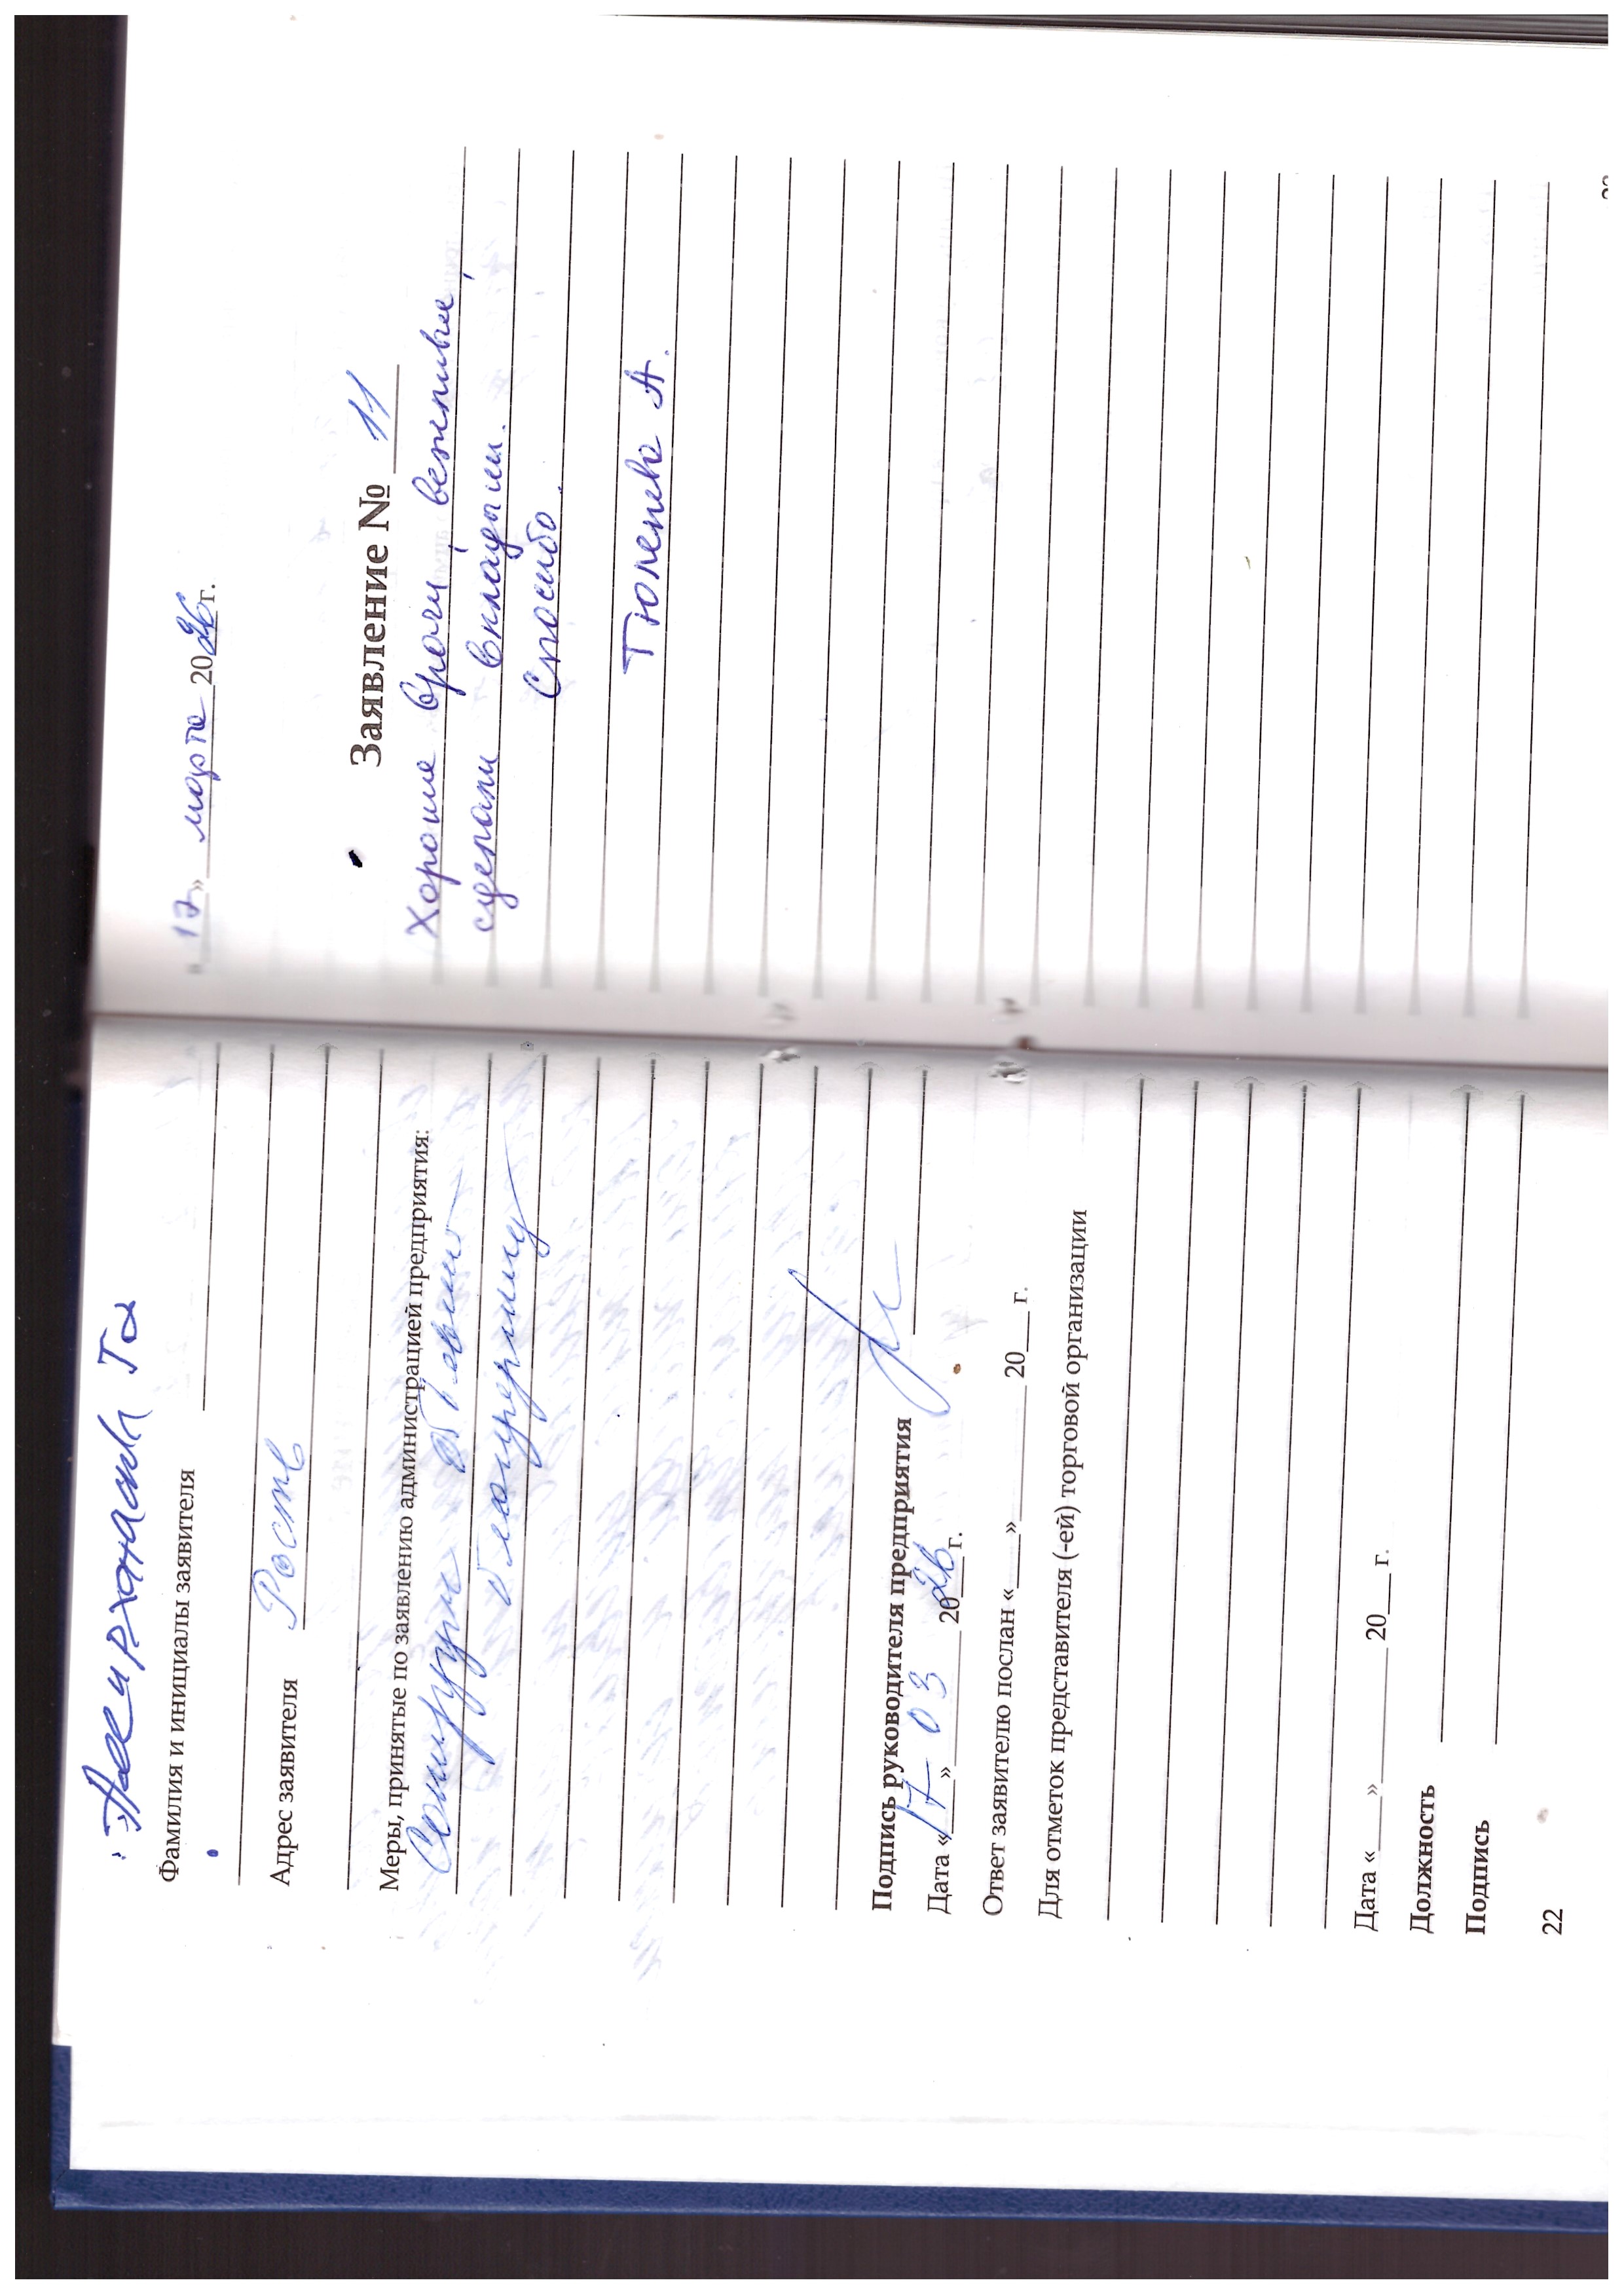 Фамилия и инициалы заявителя
Адрес заявителя
Меры, принятые по заявлению администрацией предприятия:
объявить
благодарность
Подпись руководителя предприятия
Дата « 17 » 03 2026 г.
Ответ заявителю послан «___» ______ 20__ г.
Для отметок представителя (-ей) торговой организации
Дата «___» ______ 20__ г.
Должность
Подпись
22
« 17 » марта 2026 г.
Заявление № 11
Хорошие врачи, вежливые,
сделали вкладыши.
Спасибо.
А.